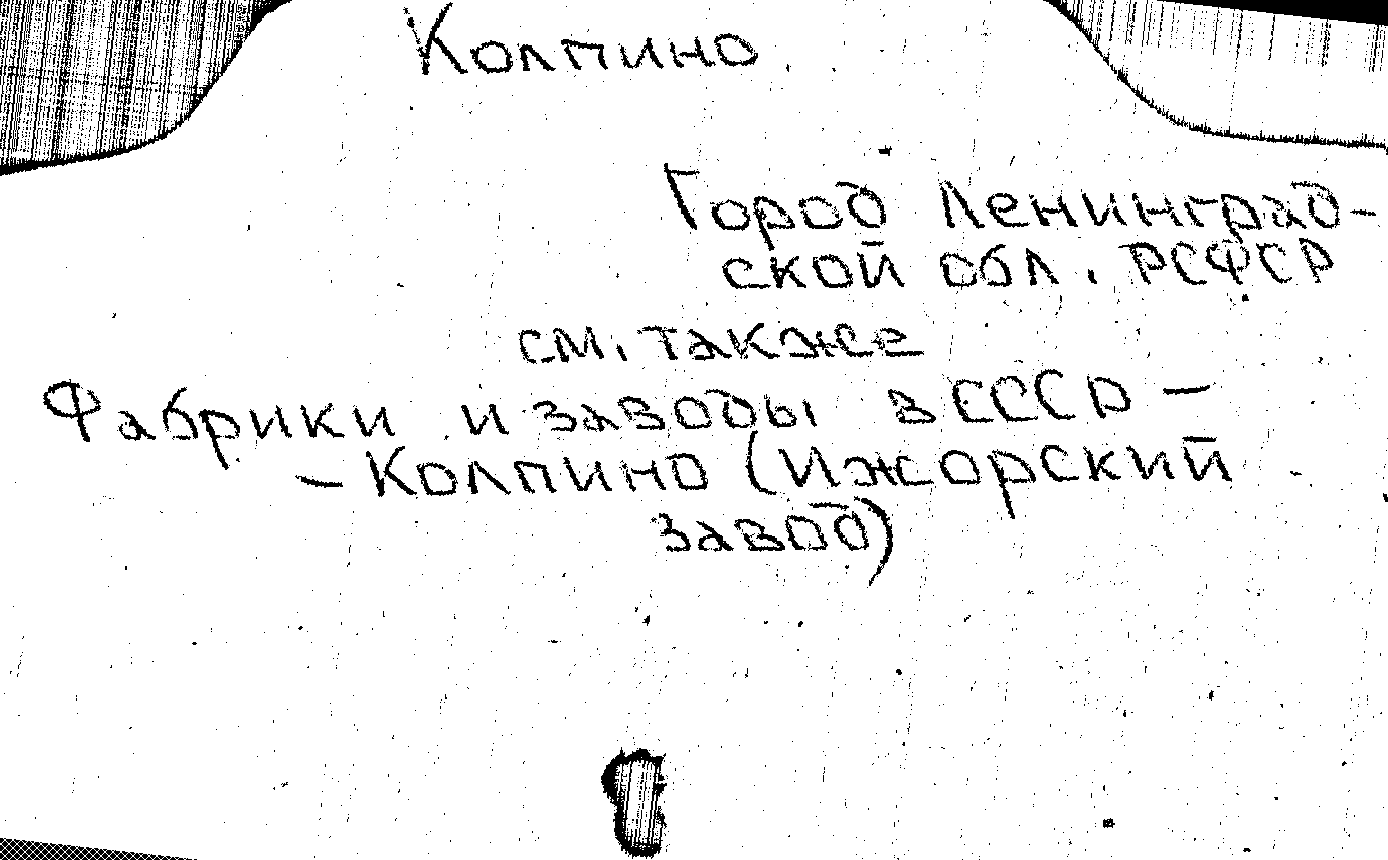 Колпино.
Город Ленинград-
ской обл. РСФСР
см. также
Фабрики и заводы в СССР —
— Колпино (Ижорский
завод)